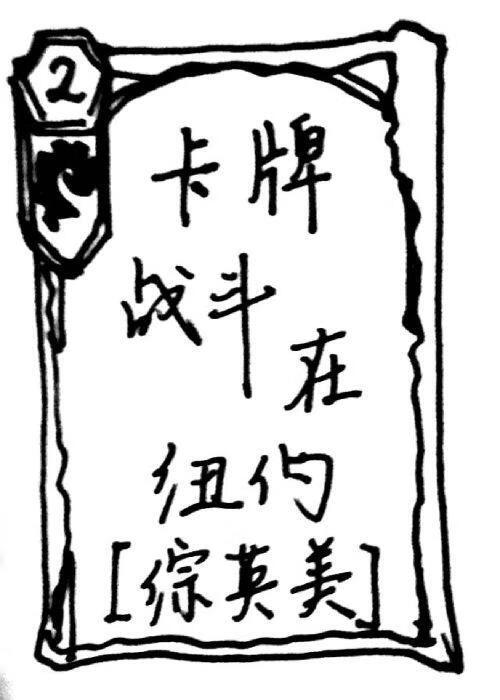 2
卡牌
战斗
在
纽约
[综英美]